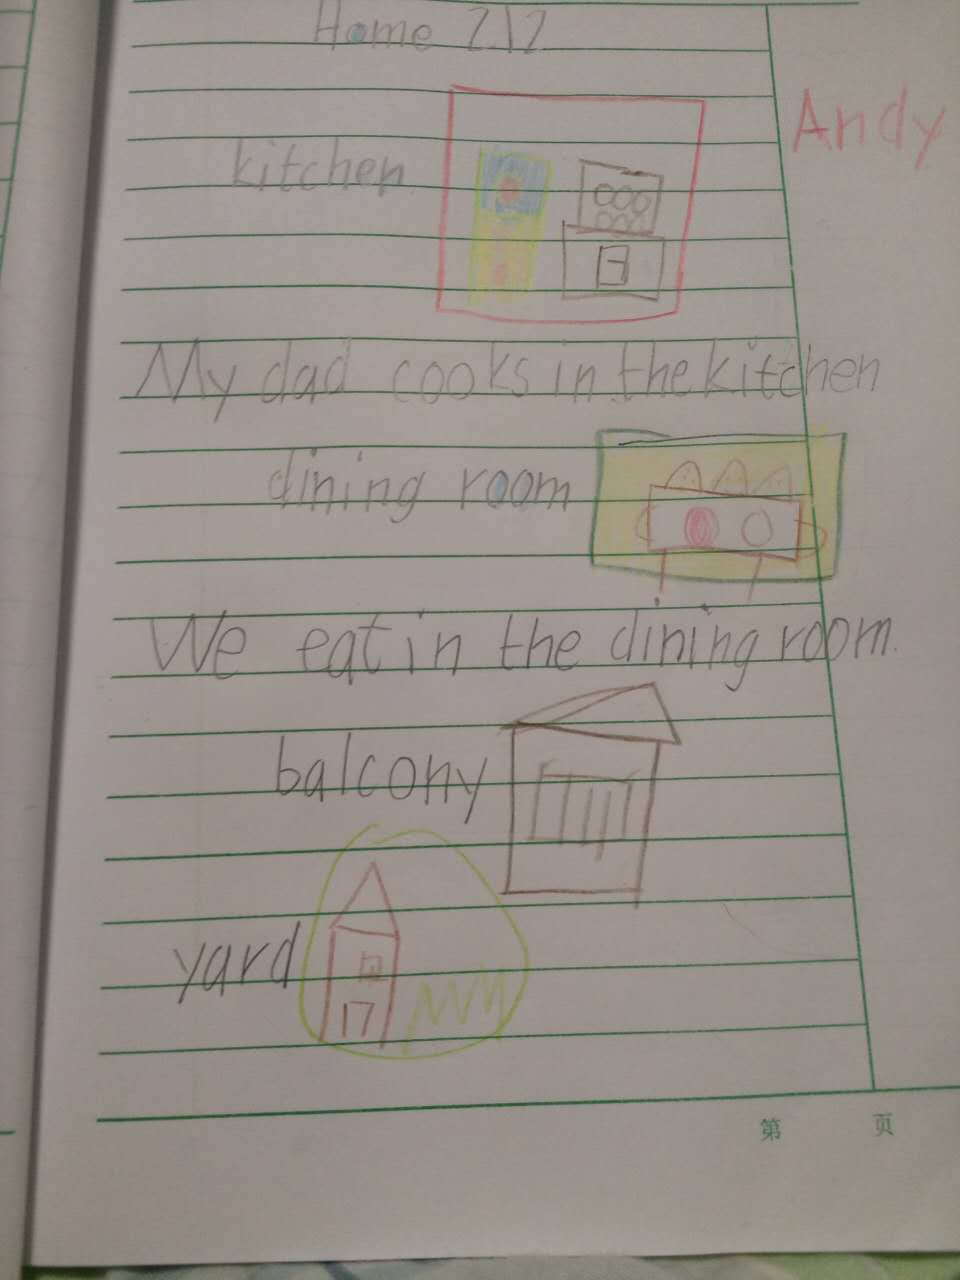 Home 2.12
Andy
kitchen
My dad cooks in the kitchen
dining room
We eat in the dining room.
balcony
yard
第 页